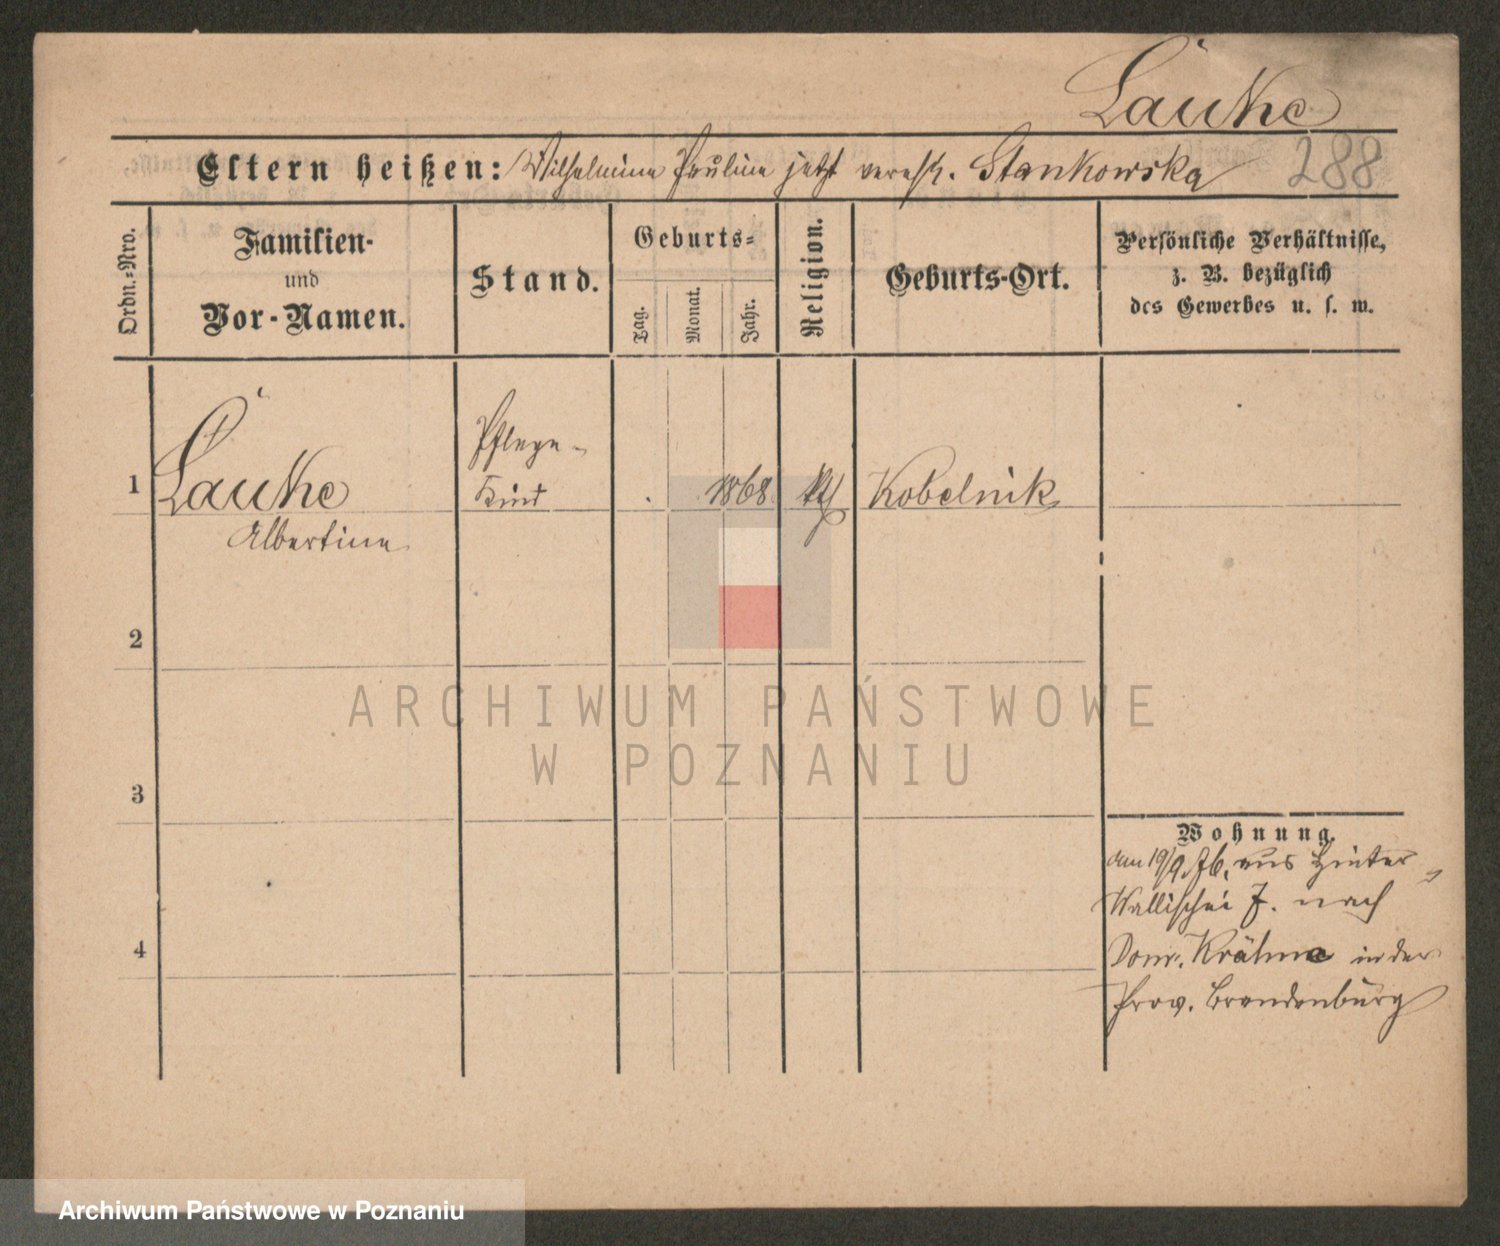 Lauke
Eltern heißen: Wilhelmine Pauline jetzt vereh. Stankowska 288
Ordn.-Nro.
Familien-
und
Vor-Namen.
Stand.
Geburts-
Tag.
Monat.
Jahr.
Religion.
Geburts-Ort.
Persönliche Verhältnisse,
z. B. bezüglich
des Gewerbes u. s. w.
1 Lauke
Albertine
Pflege-
Kind
1868 Kobelnik
2
3
4
Wohnung.
am 19/9. 76. aus Hinter
Wallischei 7. nach
Dom. in der
Prov. Brandenburg
ARCHIWUM PAŃSTWOWE
W POZNANIU
Archiwum Państwowe w Poznaniu